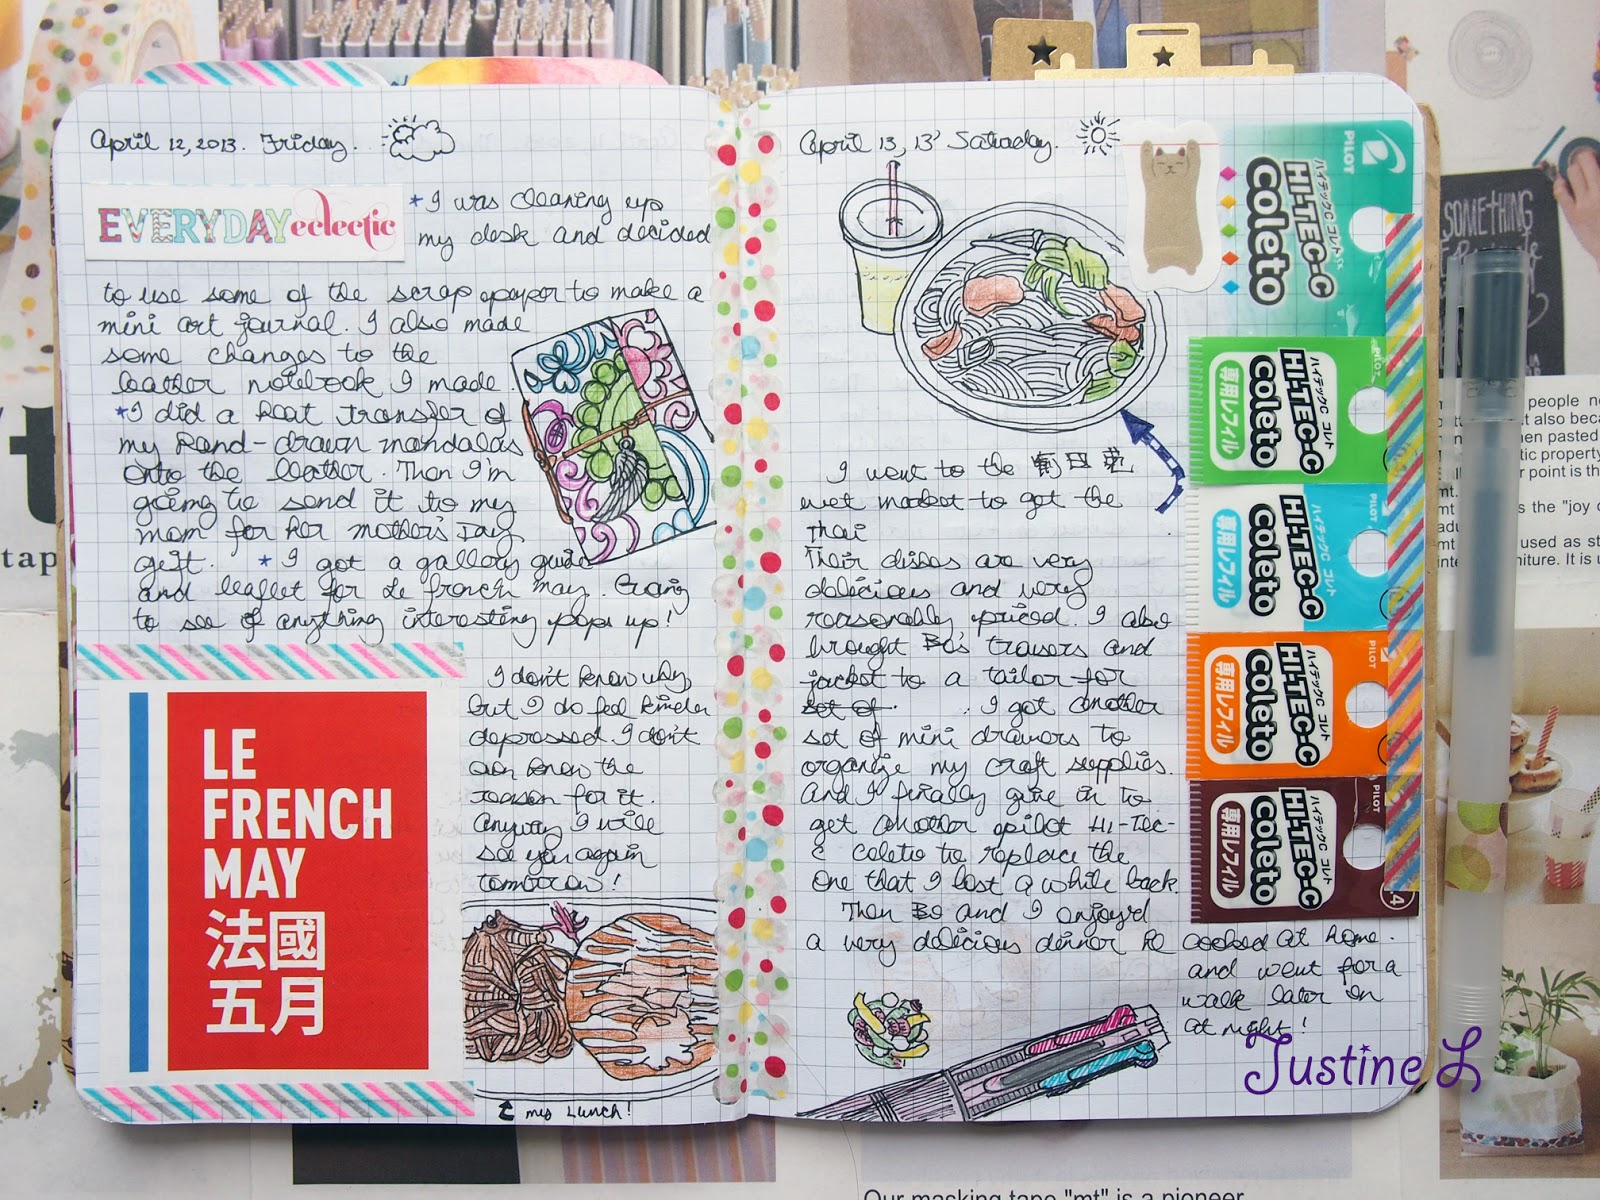 April 12, 2013. Friday.
EVERYDAY eclectic
*I was cleaning up
my desk and decided
to use some of the scrap paper to make a
mini art journal. I also made
some changes to the
leather notebook I made.
*I did a heat transfer of
my hand-drawn mandalas
onto the leather. Then I'm
going to send it to my
mom for her mother's Day
gift. *I got a gallery guide
and leaflet for Le french may.
to see if anything interesting pops up!
LE
FRENCH
MAY
法國
五月
I don't know why
but I do feel kinda
depressed. I don't
even know the
reason for it.
Anyway I will
see you again
tomorrow!
my Lunch!
April 13, 13' Saturday.
I went to the
wet market to get the
Thai
Their dishes are very
delicious and very
reasonably priced. I also
brought Bo's trousers and
jacket to a tailor for
set of. I got another
set of mini drawers to
organize my craft supplies.
And I finally give in to
get another pilot Hi-Tec-
C coleto to replace the
one that I lost a while back.
Then Bo and I enjoy'd
a very delicious dinner he cooked at home.
and went for a
walk later on
at night!
PILOT
ハイテックC コレト
HI-TEC-C
coleto
PILOT
ハイテックC コレト
HI-TEC-C
coleto
専用レフィル
PILOT
ハイテックC コレト
HI-TEC-C
coleto
専用レフィル
ハイテックC コレト
HI-TEC-C
coleto
専用レフィル
PILOT
ハイテックC コレト
HI-TEC-C
coleto
専用レフィル
4)
Justine L
SOMETHING
people
also because
when pasted
property
point is the
mt.
is the "joy
used as
furniture. It is
tap
Our masking tape "mt" is a pioneer